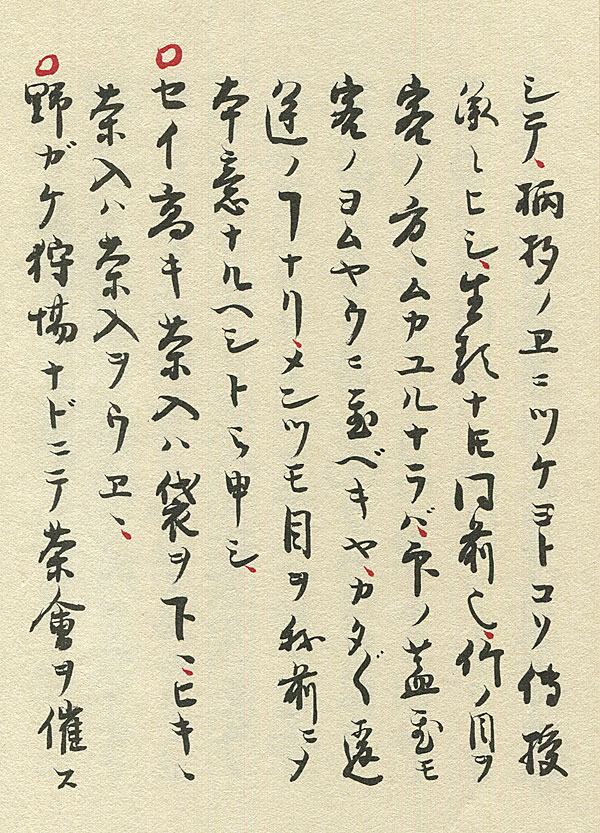 シテ、柄杓ノヱニツケヨトコソ傳授
ヒシ、生類ナ𪜈同前也、竹ノ目ヲ
客ノ方ヘムカユルナラバ、印ノ蓋置モ
客ノヨムヤウニ置ベキヤ、カタ〲返
逆ノヿナリ、メンツモ目ヲ我前ニメ
本意ナルヘシトゾ申シ、
○セイ高キ茶入ハ袋ヲ下ニヒキ、
茶入ハ茶入ヲウヱニ、
○野ガケ狩場ナドニテ茶會ヲ催ス